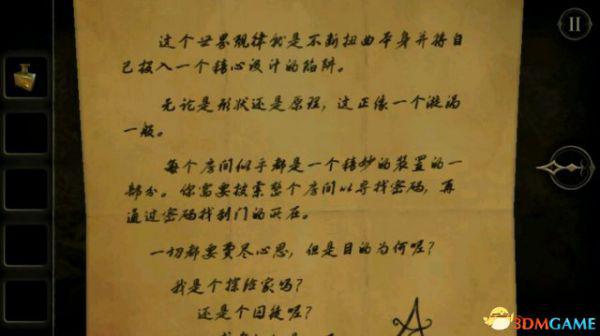 这个世界规律就是不断扭曲本身并将自
己投入一个精心设计的陷阱。
无论是形状还是原理，这正像一个漩涡
一般。
每个房间似乎都是一个精妙的装置的一
部分。你需要搜索整个房间以寻找密码，再
通过密码找到门的灰石。
一切都要费尽心思，但是目的为何呢？
我是个探险家吗？
还是个囚徒呢？
3DMGAME